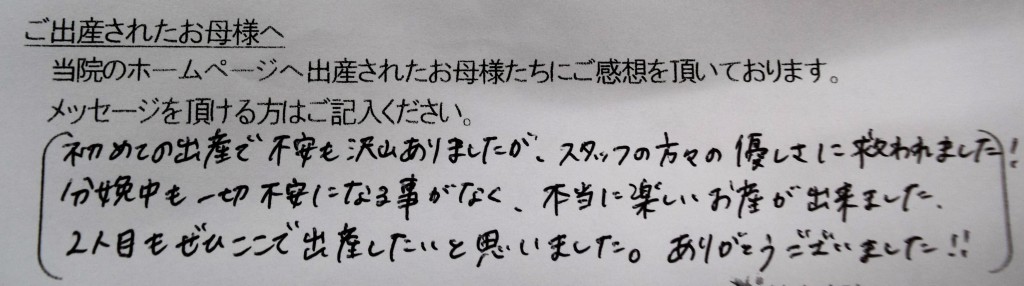 ご出産されたお母様へ
当院のホームページへ出産されたお母様たちにご感想を頂いております。
メッセージを頂ける方はご記入ください。
初めての出産で不安も沢山ありましたが、スタッフの方々の優しさに救われました!
分娩中も一切不安になる事がなく、本当に楽しいお産が出来ました、
2人目もぜひここで出産したいと思いました。ありがとうございました!!